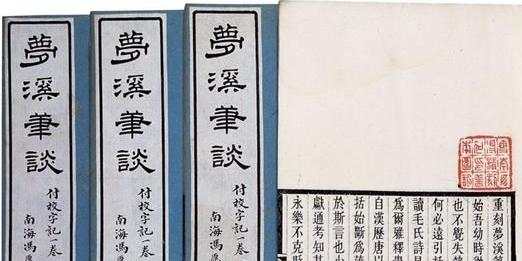 重刻夢溪筆
始吾幼時
也不覺失
何必遠引
讀毛氏詩
為爾雅釋
自漢歷唐以
括始斷爲
於斯言也
獻通考知其
永樂不克
夢溪筆談
付校字記一卷
南海馮
夢溪筆談
付校字記一卷
南海馮
夢溪筆談
付校字記一卷
南海馮